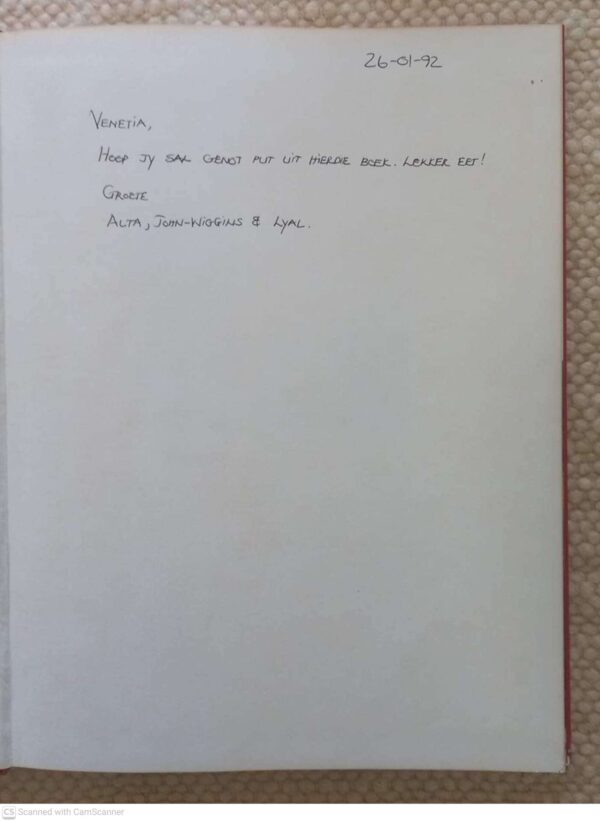 26-01-92
VENETIA,
HOOP JY SAL GENOT PUT UIT HIERDIE BOEK. LEKKER EET!
GROETE
ALTA, JOHN-WIGGINS & LYAL.
CS Scanned with CamScanner